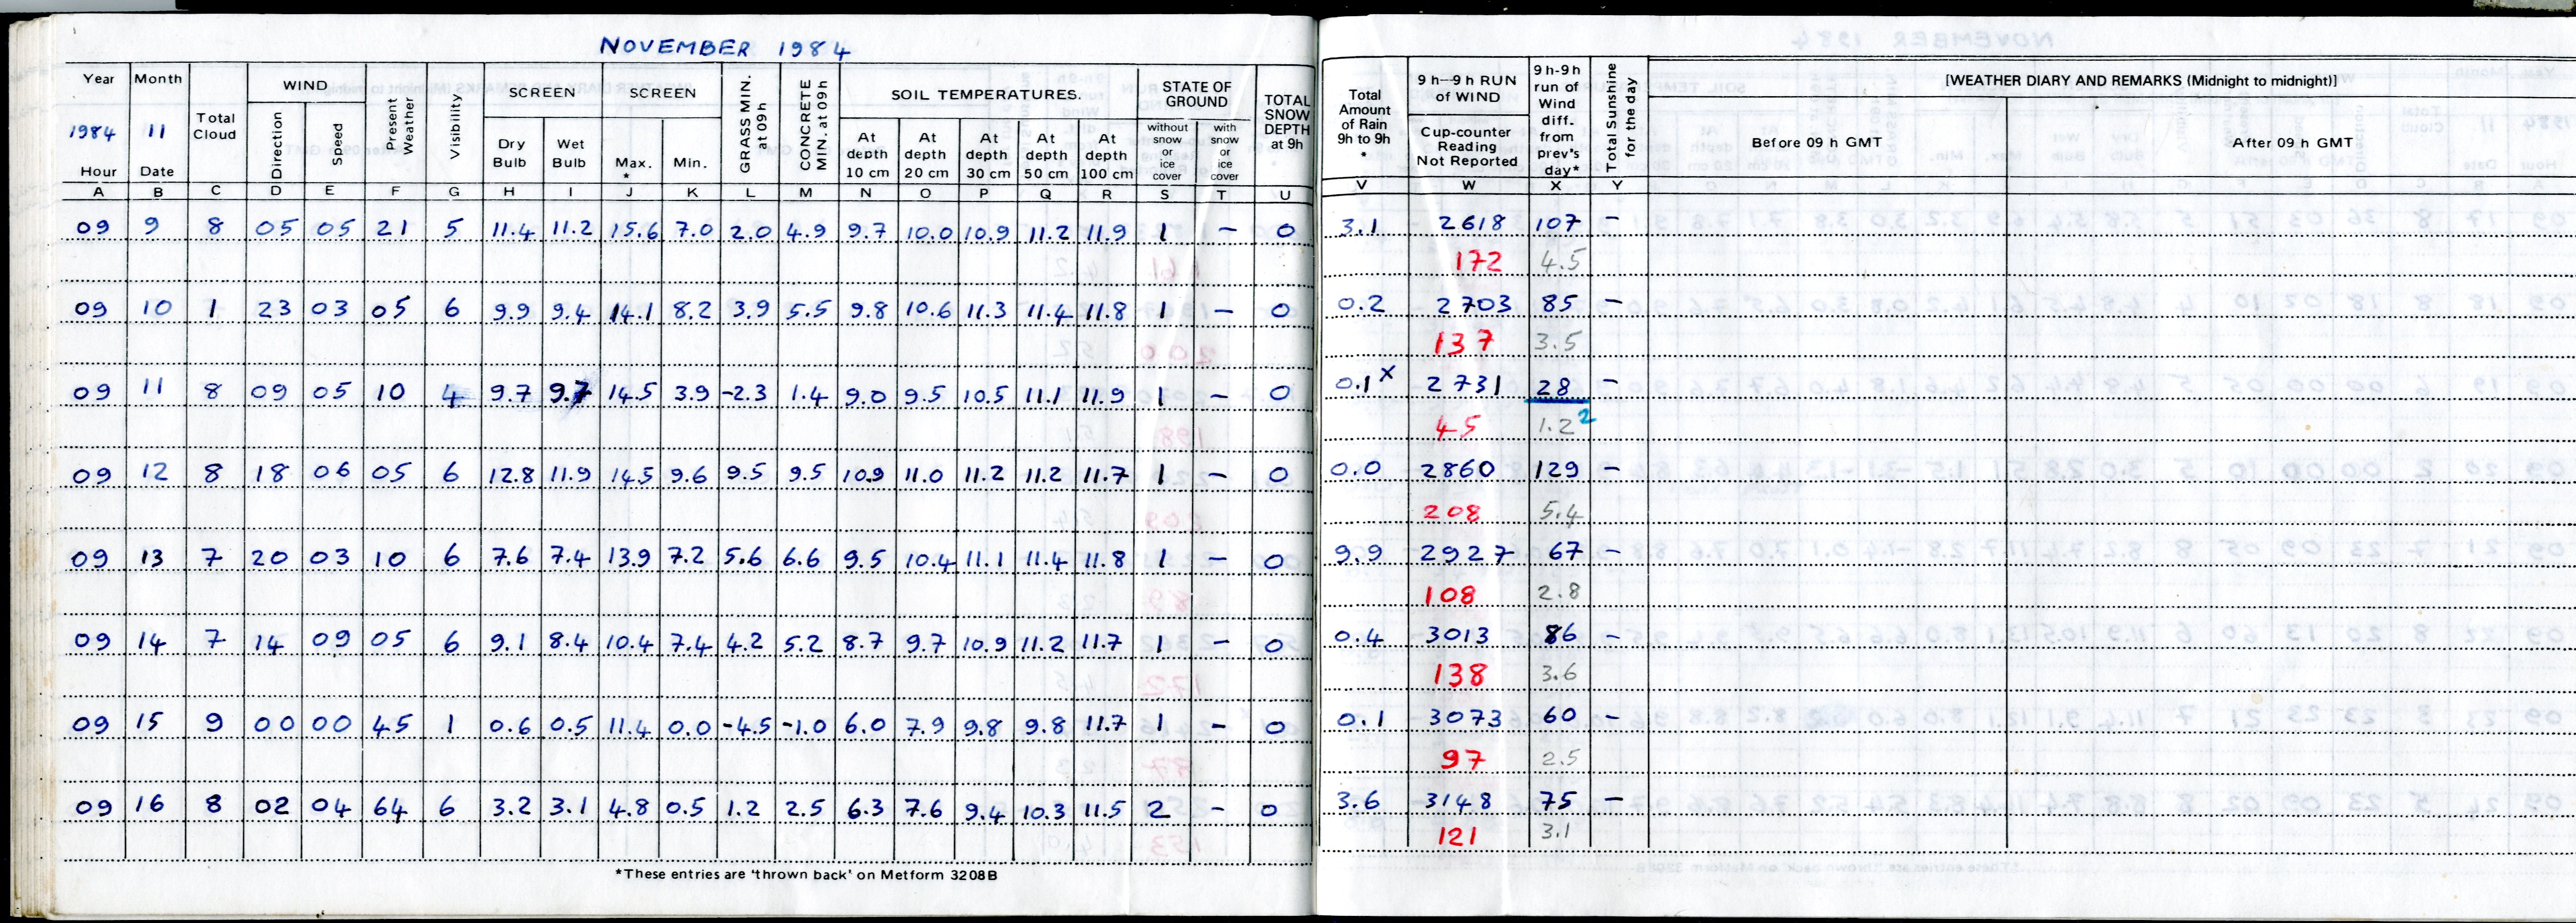 NOVEMBER 1984
Year Month Total Cloud WIND Present Weather Visibility SCREEN SCREEN GRASS MIN. at 09h CONCRETE MIN. at 09h SOIL TEMPERATURES. STATE OF GROUND TOTAL SNOW DEPTH at 9h Total Amount of Rain 9h to 9h * 9 h—9 h RUN of WIND 9 h-9h run of Wind diff. from prev's day* Total Sunshine for the day [WEATHER DIARY AND REMARKS (Midnight to midnight)]
1984 11 Direction Speed Dry Bulb Wet Bulb Max. * Min. At depth 10 cm At depth 20 cm At depth 30 cm At depth 50 cm At depth 100 cm without snow or ice cover with snow or ice cover Cup-counter Reading Not Reported Before 09 h GMT After 09 h GMT
Hour Date
A B C D E F G H I J K L M N O P Q R S T U V W X Y
09 9 8 05 05 21 5 11.4 11.2 15.6 7.0 2.0 4.9 9.7 10.0 10.9 11.2 11.9 1 – 0 3.1 2618 107 –
172 4.5
09 10 1 23 03 05 6 9.9 9.4 14.1 8.2 3.9 5.5 9.8 10.6 11.3 11.4 11.8 1 – 0 0.2 2703 85 –
137 3.5
09 11 8 09 05 10 4 9.7 9.7 14.5 3.9 -2.3 1.4 9.0 9.5 10.5 11.1 11.9 1 – 0 0.1 x 2731 28 –
45 1.2 2
09 12 8 18 06 05 6 12.8 11.9 14.5 9.6 9.5 9.5 10.9 11.0 11.2 11.2 11.7 1 – 0 0.0 2860 129 –
208 5.4
09 13 7 20 03 10 6 7.6 7.4 13.9 7.2 5.6 6.6 9.5 10.4 11.1 11.4 11.8 1 – 0 9.9 2927 67 –
108 2.8
09 14 7 14 09 05 6 9.1 8.4 10.4 7.4 4.2 5.2 8.7 9.7 10.9 11.2 11.7 1 – 0 0.4 3013 86 –
138 3.6
09 15 9 00 00 45 1 0.6 0.5 11.4 0.0 -4.5 -1.0 6.0 7.9 9.8 9.8 11.7 1 – 0 0.1 3073 60 –
97 2.5
09 16 8 02 04 64 6 3.2 3.1 4.8 0.5 1.2 2.5 6.3 7.6 9.4 10.3 11.5 2 – 0 3.6 3148 75 –
121 3.1
*These entries are 'thrown back' on Metform 3208B